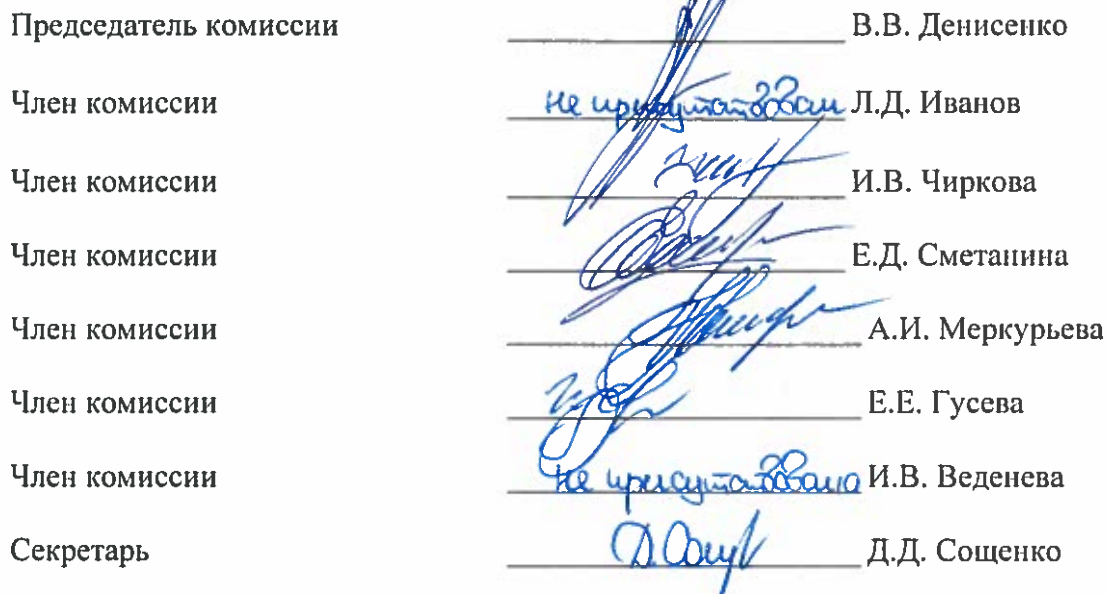 Председатель комиссии В.В. Денисенко
Член комиссии не присутствовал Л.Д. Иванов
Член комиссии И.В. Чиркова
Член комиссии Е.Д. Сметанина
Член комиссии А.И. Меркурьева
Член комиссии Е.Е. Гусева
Член комиссии не присутствовала И.В. Веденева
Секретарь Д.Д. Сощенко